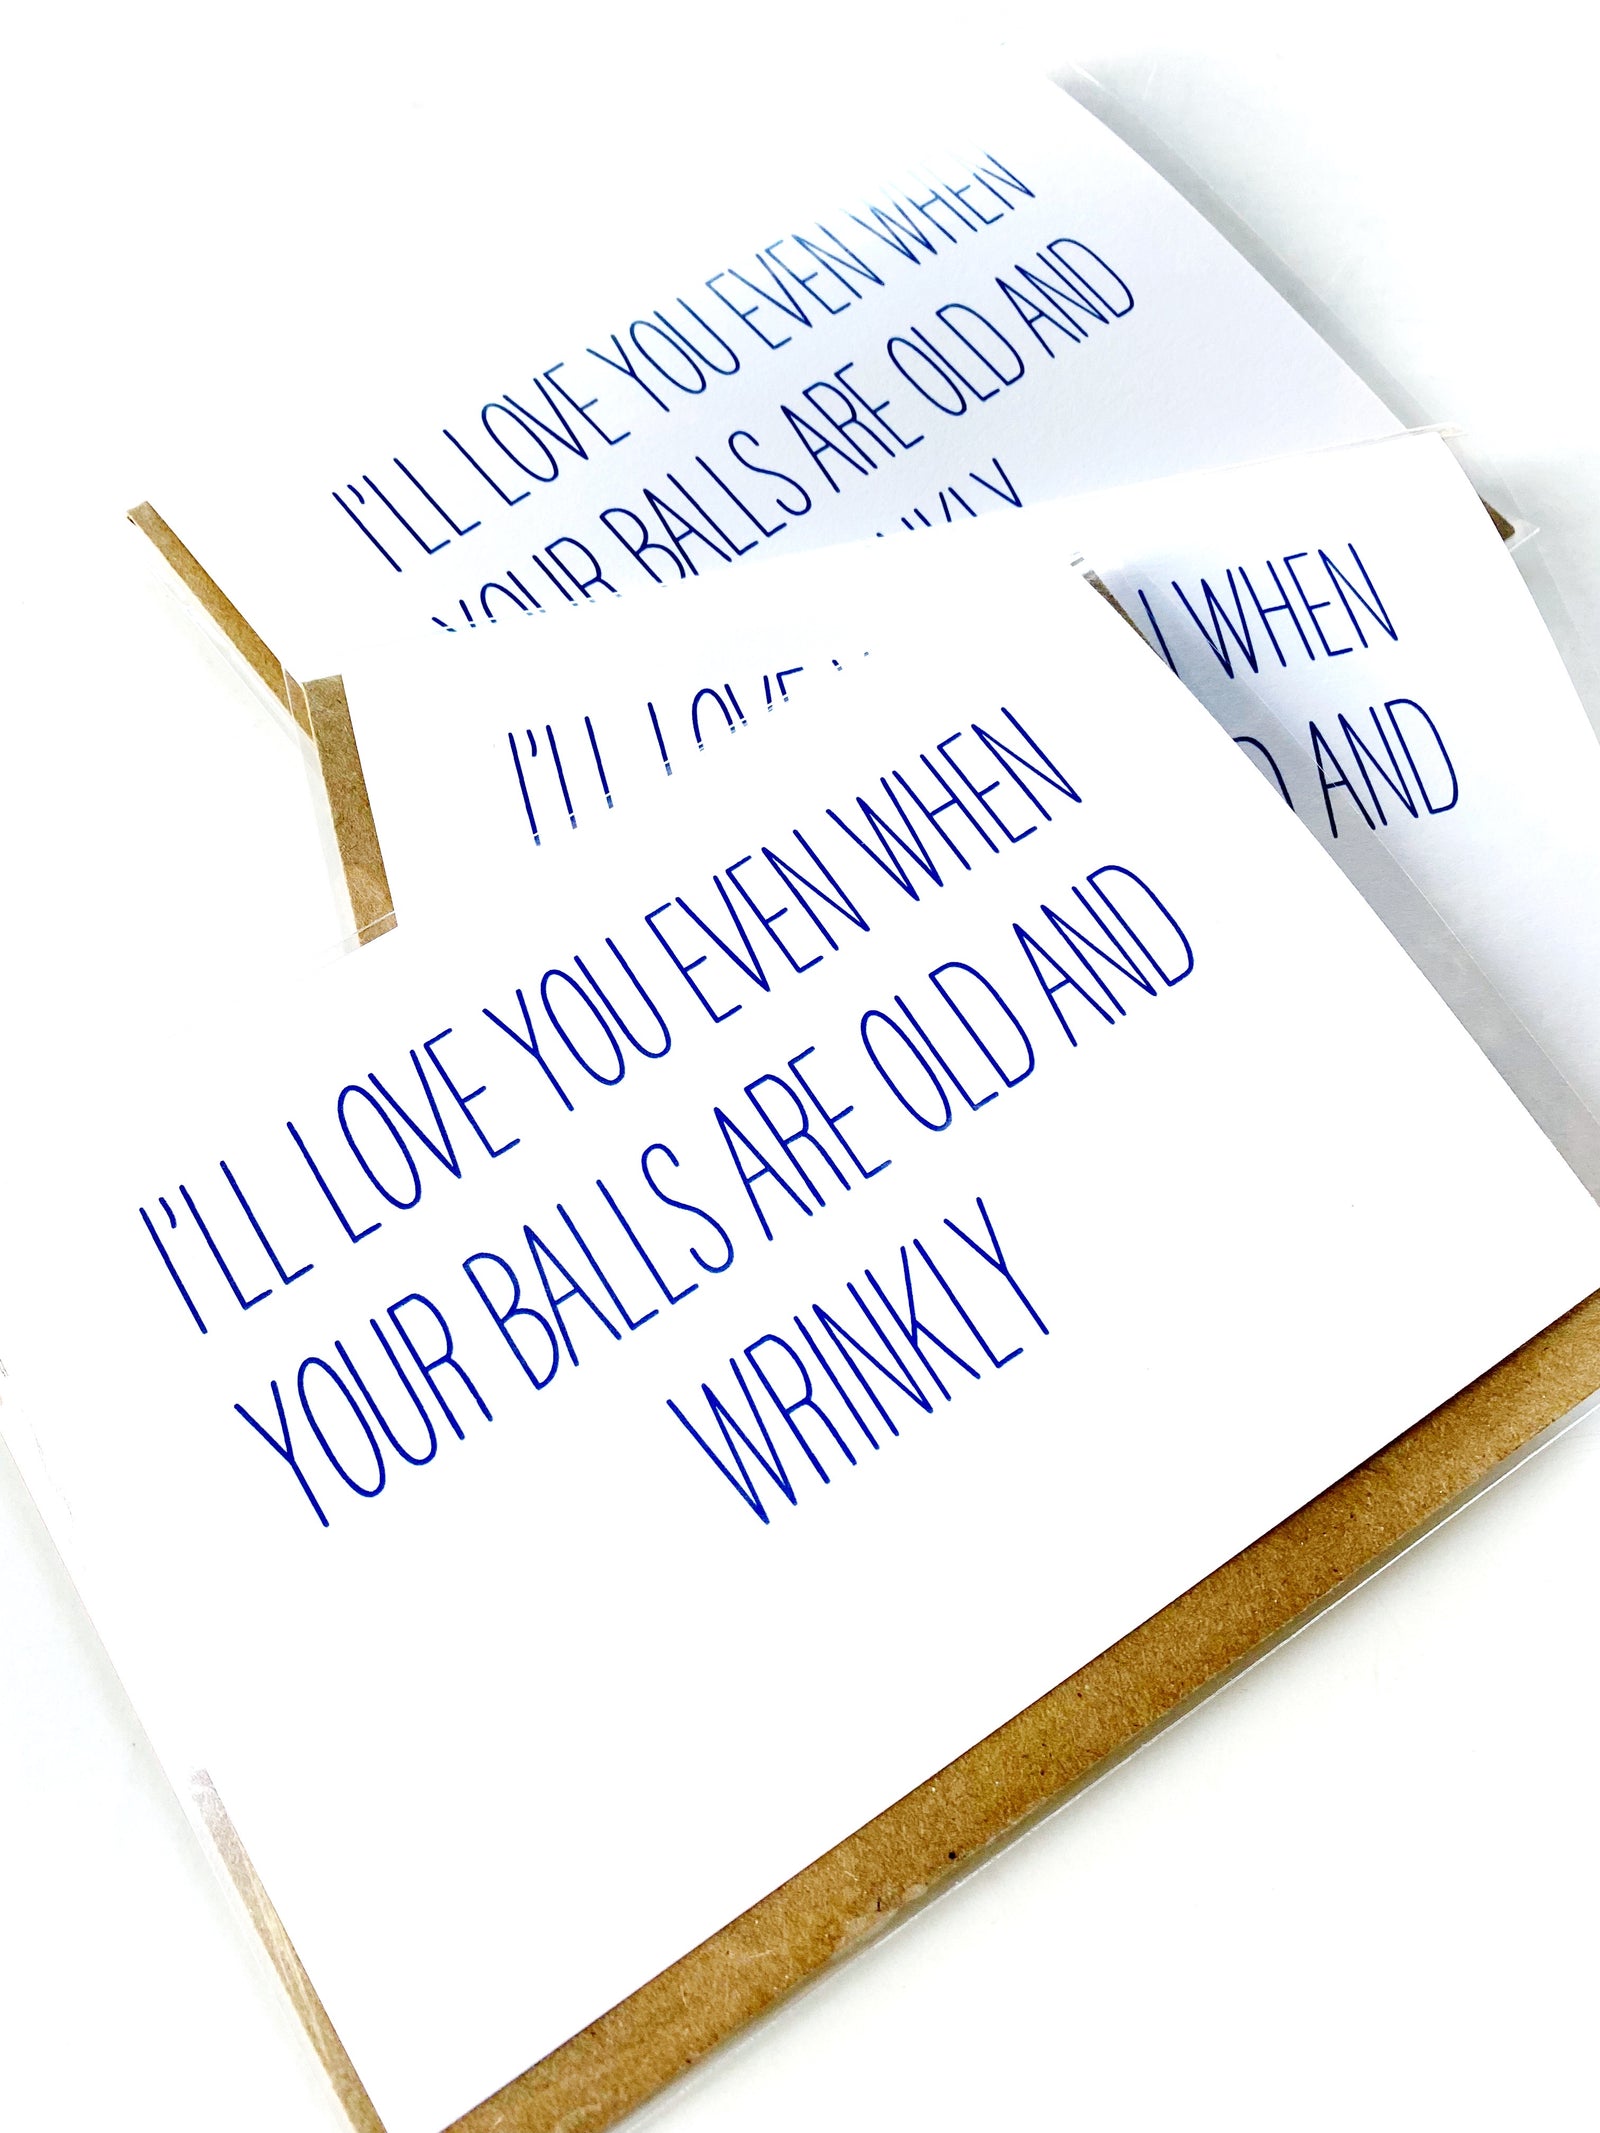 I'LL LOVE YOU EVEN WHEN
YOUR BALLS ARE OLD AND
I'LL LOVE
WHEN
AND
I'LL LOVE YOU EVEN WHEN
YOUR BALLS ARE OLD AND
WRINKLY